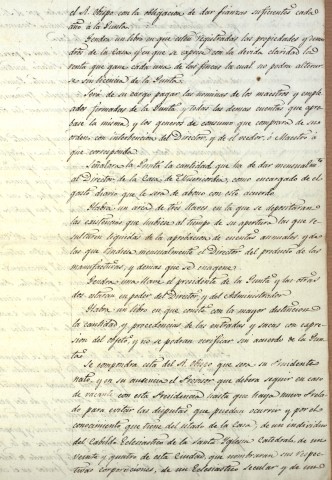 el R. Obispo con la obligacion de dar fianzas suficientes cada
año a la Junta.
Tendra un libro en que esten registradas las propiedades y
dros de la Casa y en que se exprese con la devida claridad la
renta que gana cada una de las fincas la cual no podra alterar
se sin licencia de la Junta.
Sera de su cargo pagar las nominas de los maestros y emple
ados firmadas de la Junta y todas las demas cuentas que apro
base la misma, y los generos de consumo que comprara de su
orden con intervencion del Director, y del veedor, o Maestro a
que corresponda.
Señalara la Junta la cantidad que ha de dar mensualmte
al Director de la Casa de Misericordia como encargado de el
gasto diario que le sera de abono con este acuerdo.
Habra un arca de tres llaves en la que se depositaran
las existencias que hubiere al tiempo de su apertura las que re
sultaren liquidas de la aprobacion de cuentas anuales y de
las que rindiere mensualmente el Director del producto de las
manufacturas, y demas que se enagene.
Tendra una llave el presidente de la Junta y las otras
dos estaran en poder del Director, y del Administrador.
Habra un libro en que conste con la mayor distincion
la cantidad y procedencias de las entradas y sacas con expre
sion del objeto, y no se podran verificar sin acuerdo de la Jun
ta.
Se compondra esta del R. Obispo que sera su Presidente
nato, y en su ausencia el Provisor que debera seguir en caso
de vacante con esta Presidencia hasta que haya nuevo Prela
do para evitar las disputas que puedan ocurrir y por el
conocimiento que tiene del estado de la Casa; de un individuo
del Cabildo Eclesiastico de la Santa Iglesia Catedral, de un
veinte y quatro de esta Ciudad, que nombraran sus respec
tivas corporaciones, de un Eclesiastico secular y de una